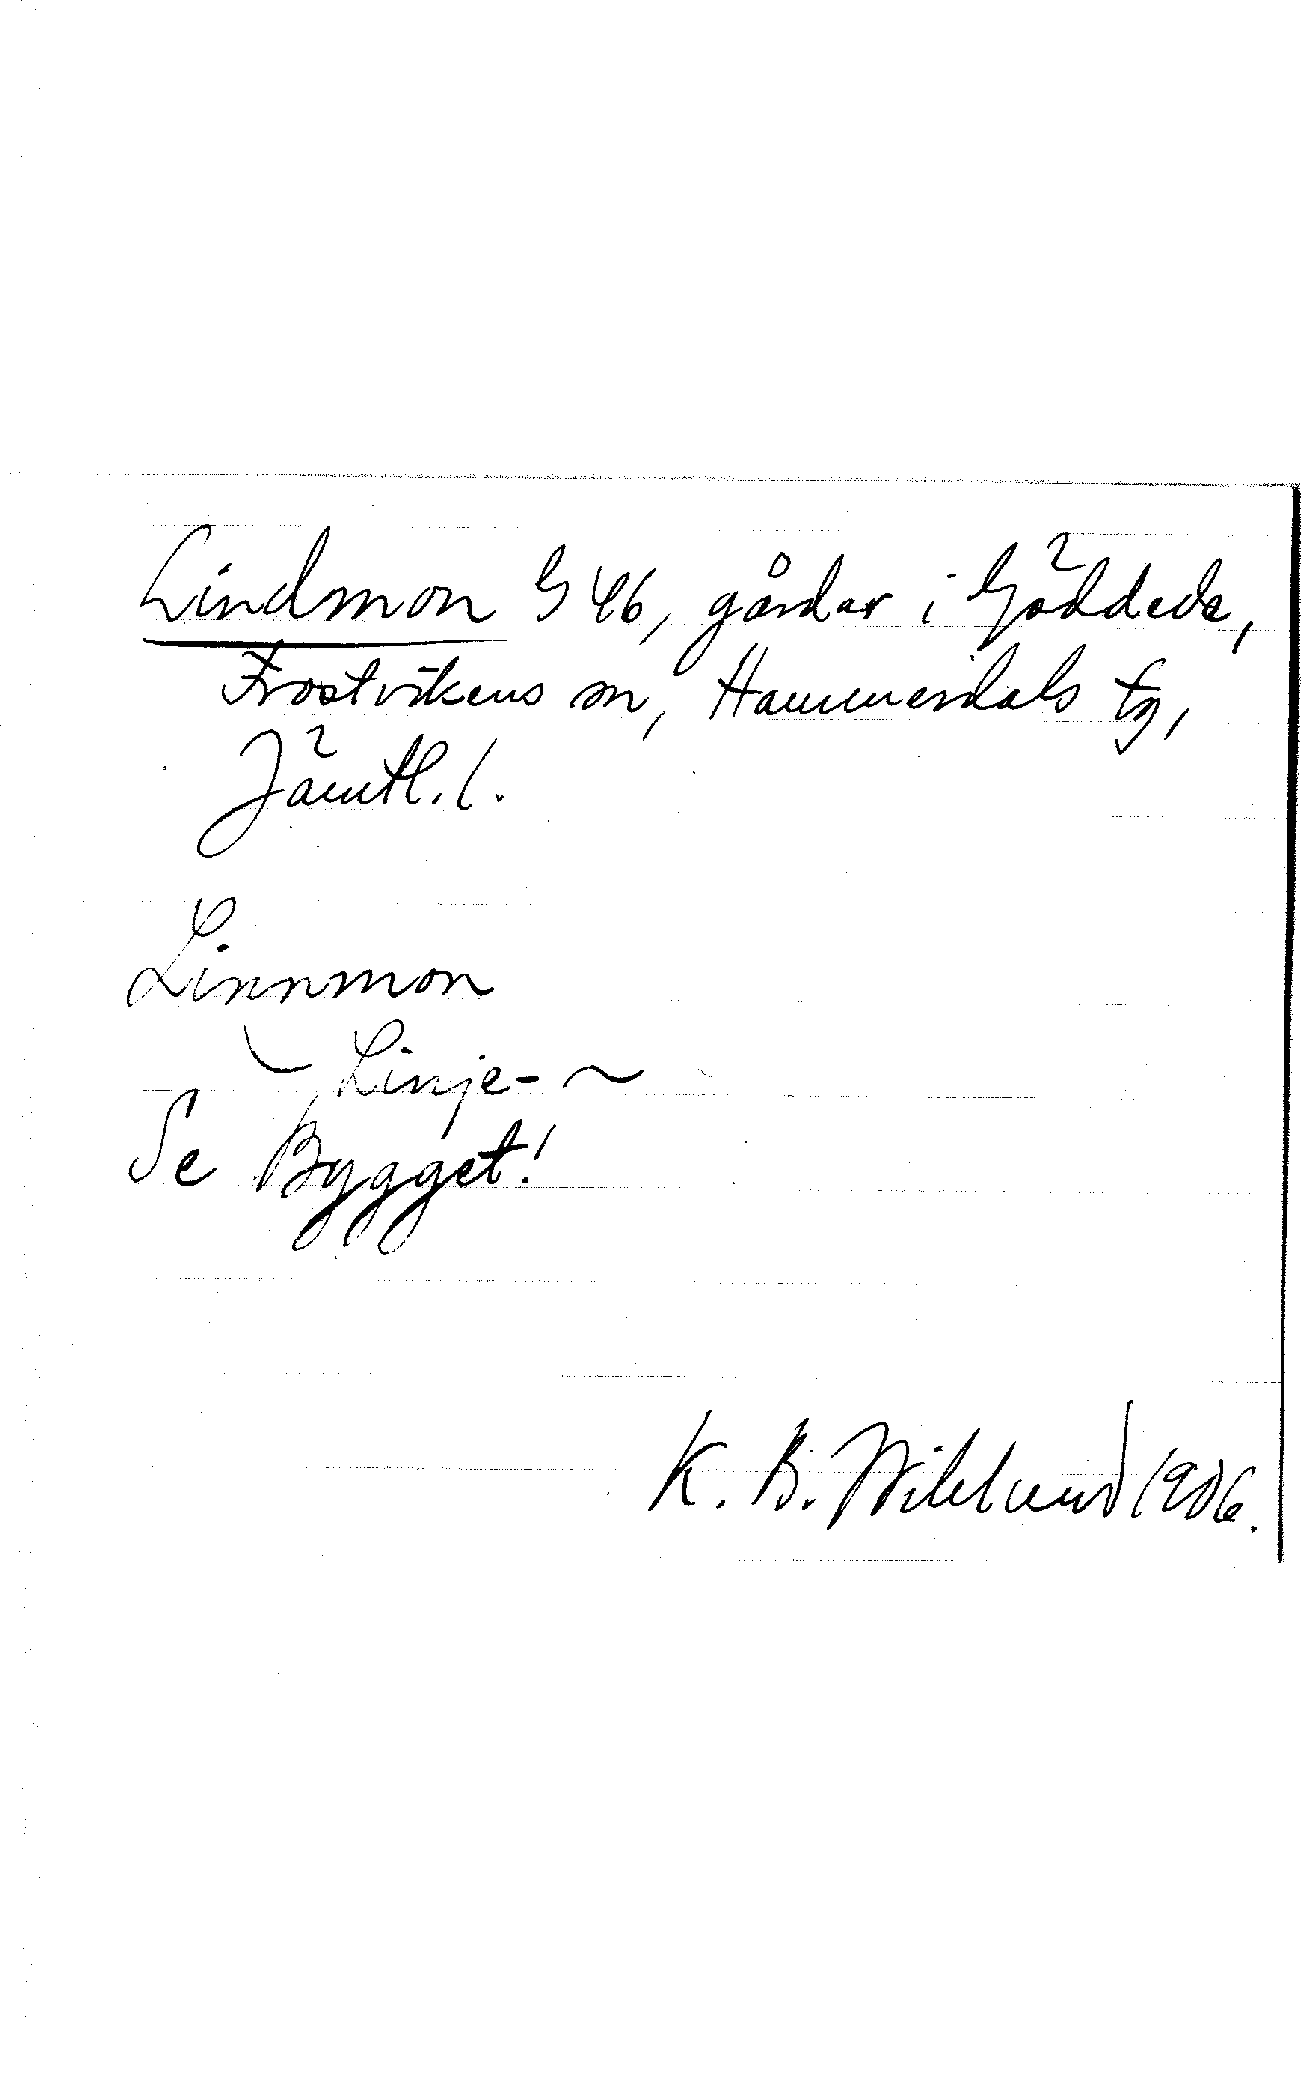 Lindmon G 46, gårdar i Gäddede,
Frostvikens sn, Hammerdals tg,
Jämtl. l.
Linnmon
Linje- ~
Se Bygget!
K. B. Wiklund 1906.